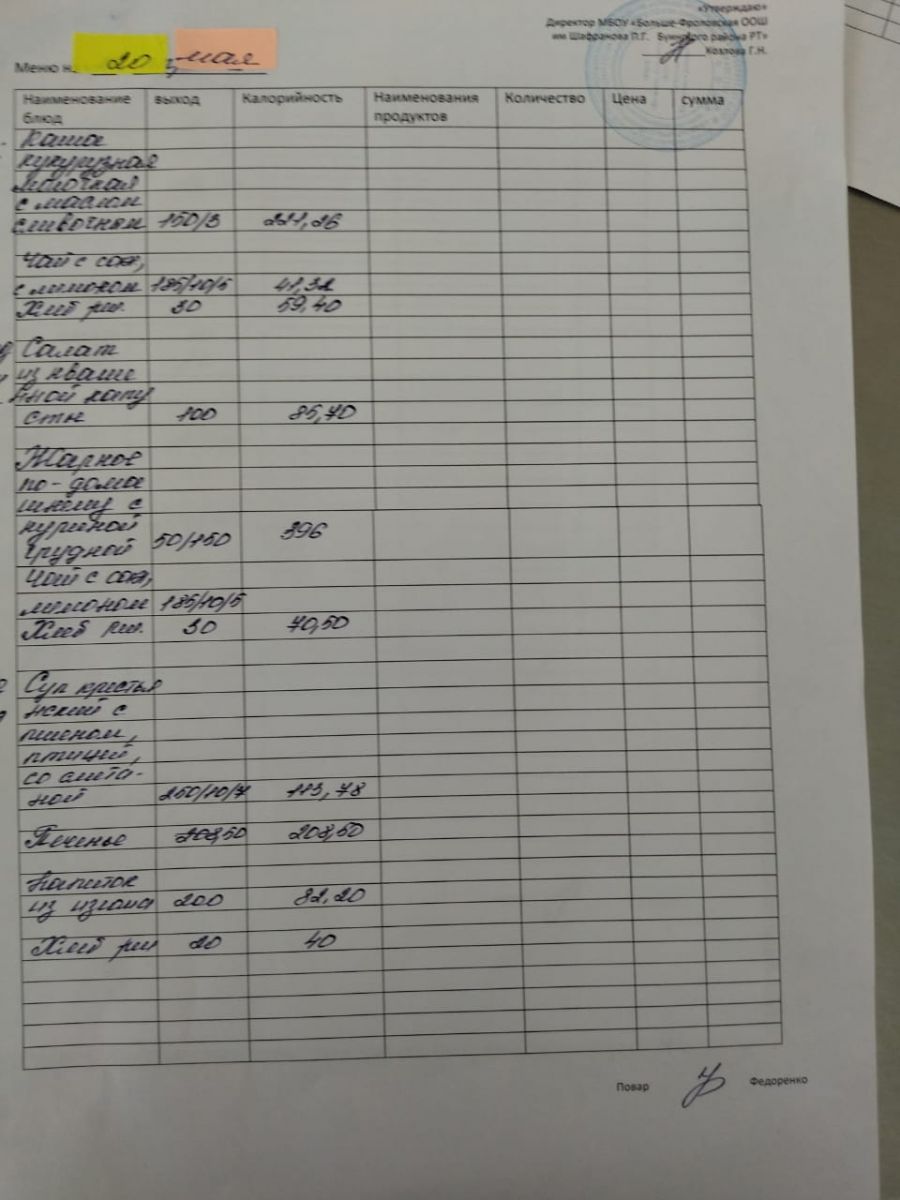 «Утверждаю»
Директор МБОУ «Больше-Фроловская ООШ
им Шафранова П.Г. Буинского района РТ»
Козлова Г.Н.
Меню н 20 мая
Наименование блюд выход Калорийность Наименования продуктов Количество Цена сумма
Каша
кукурузная
молочная
с маслом
сливочным 150/3 221,26
Чай с сах,
с лимоном 185/10/5 41,32
Хлеб рж. 30 59,40
Салат
из кваше
нной капу
сты 100 85,70
Жаркое
по-домаш
шнему с
куриной
грудкой 50/150 396
Чай с сах,
лимоном 185/10/5
Хлеб рж. 30 70,50
Суп крестья
нский с
пшеном,
птицей,
со смета-
ной 250/10/7 113,78
Печенье 208,50
Напиток
из изюма 200 82,20
Хлеб рж 20 40
Повар Федоренко